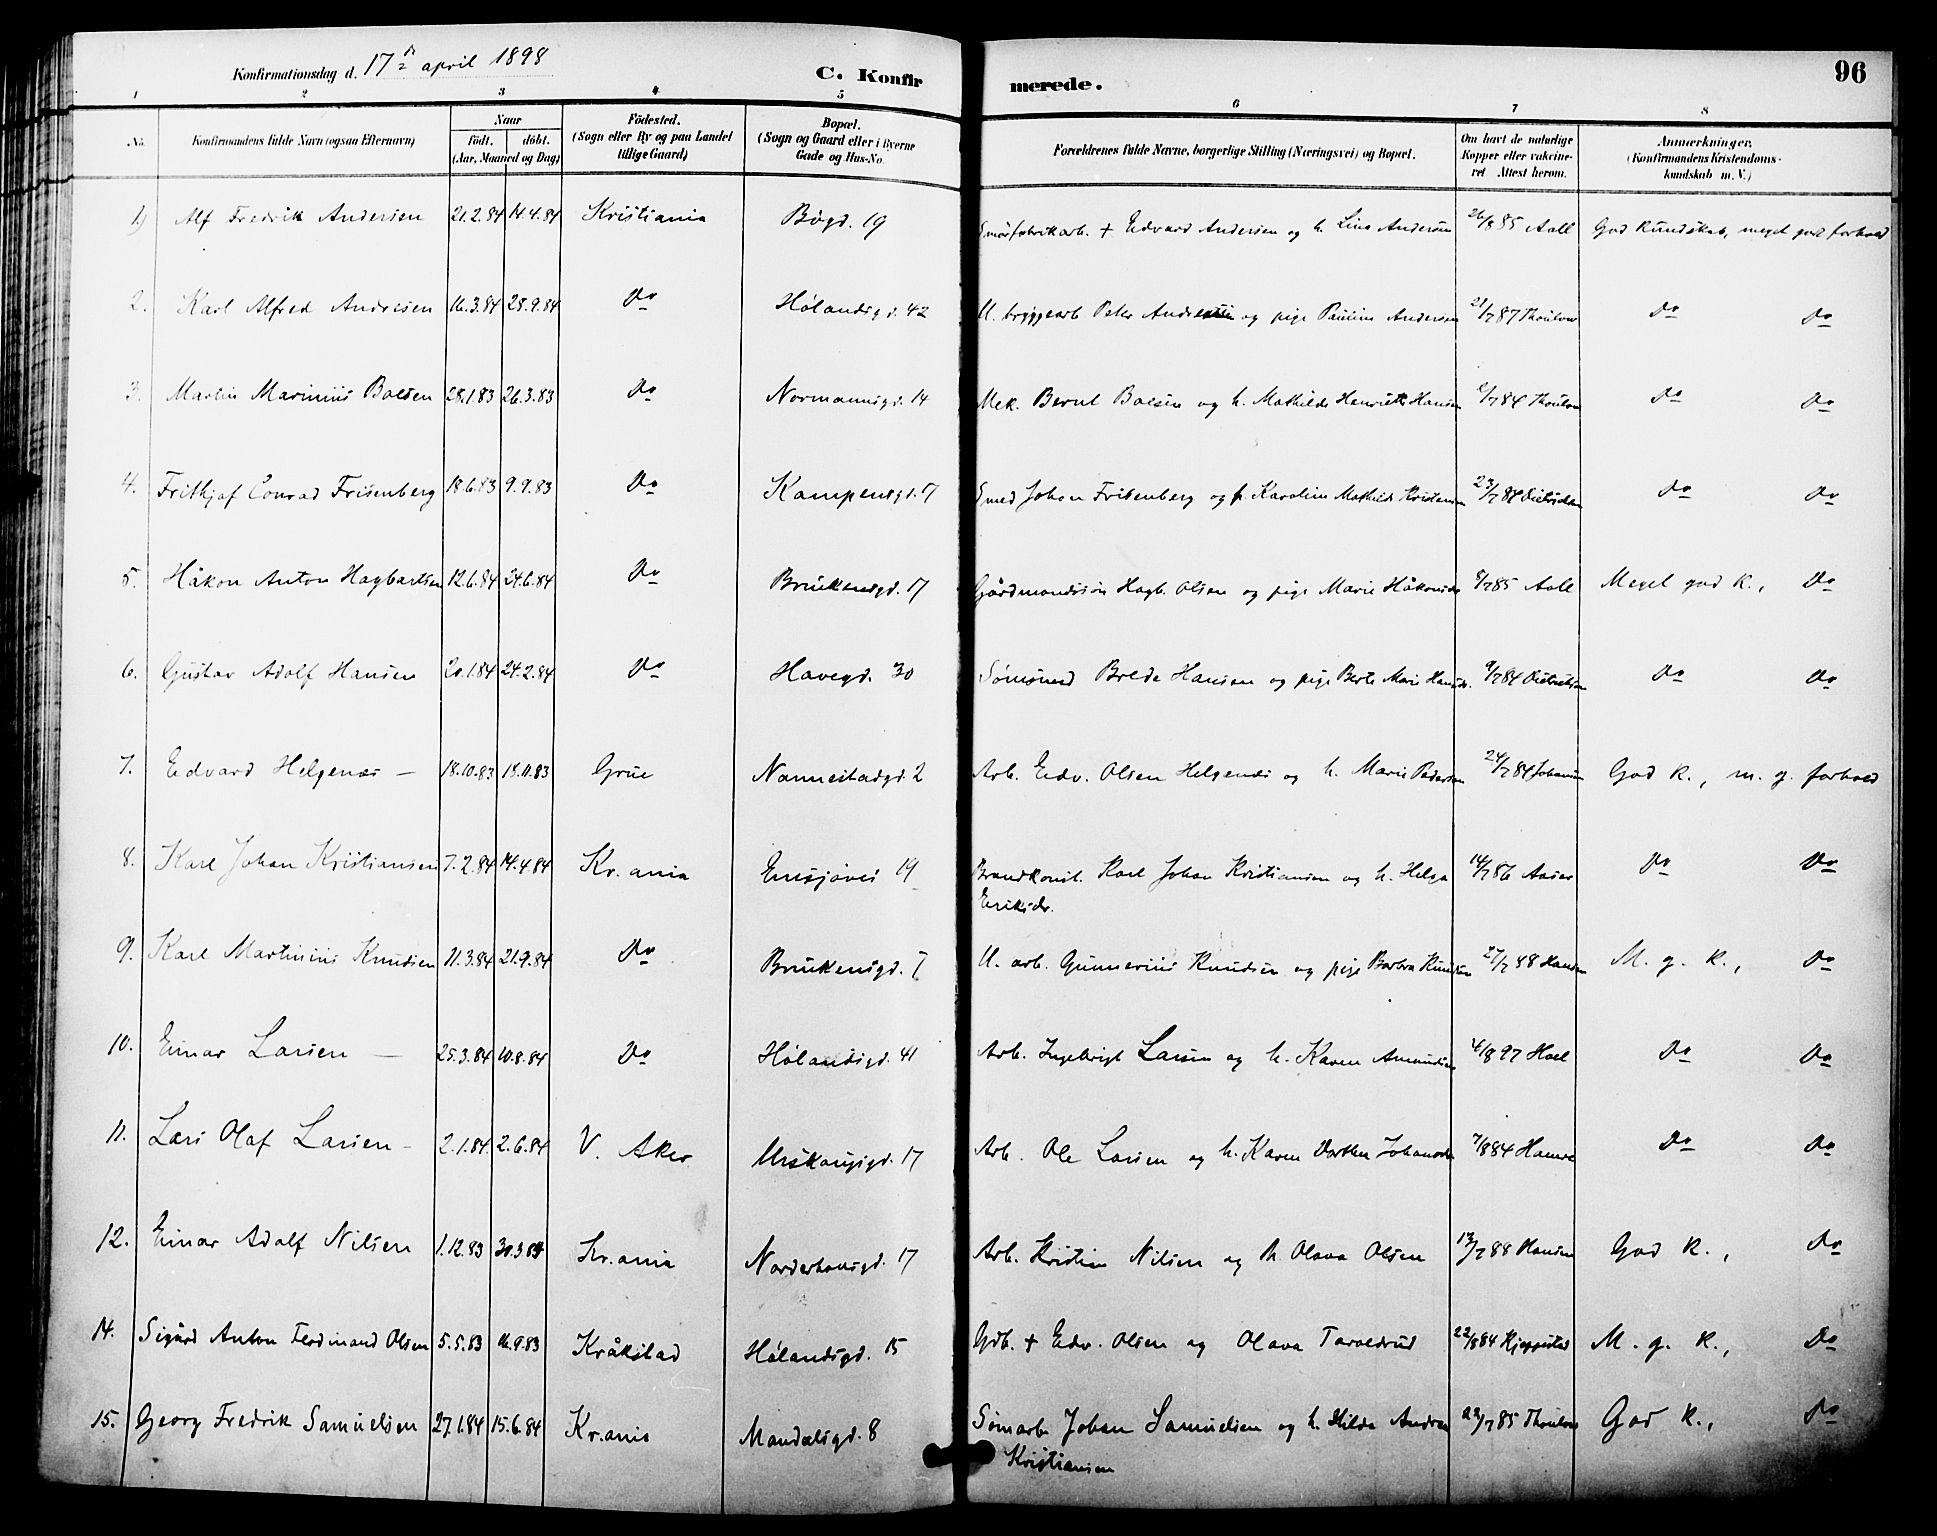 Konfirmationsdag d. 17de april 1898 C. Konfirmerede. 96
1 2 3 4 5 6 7 8
No. Konfirmandens fulde Navn (ogsaa Efternavn) Naar født. døbt. (Aar, Maaned og Dag) Fødested. (Sogn eller By og paa Landet tillige Gaard) Bopæl. (Sogn og Gaard eller i Byerne Gade og Hus-No. Forældrenes fulde Navne, borgerlige Stilling (Næringsvei) og Bopæl. Om havt de naturlige Kopper eller vakcineret Attest herom. Anmærkninger. (Konfirmandens Kristendomskundskab m. V.)
1) Alf Fredrik Andersen 21.2.84 14.4.84 Kristiania Bøgd. 19 Smørfabrikarb. + Edvard Andersen og h. Lina Andersen 26/8 85 Aall God Kundskab, meget god forhold
2. Karl Alfred Andresen 16.3.84 28.9.84 Do Hølandsgd. 42 U. bryggearb Peter Andresen og pige Pauline Andersen 21/7 87 Thoulow Do Do
3. Martin Marinius Boesen 28.1.83 26.3.83 Do Normannsgd. 14 Mek. Bernt Boesen og h. Mathilde Henriette Hansen 6/7 84 Thoulow Do Do
4. Frithjof Conrad Frisenberg 18.6.83 9.9.83 Do Kampensgd. 17 Smed Johan Frisenberg og h. Karoline Mathilde Kristensen 23/7 84 Dietrichsen Do Do
5. Håkon Anton Hagbartsen 12.6.84 24.6.84 Do Brinkensgd. 17 Gårdmandssøn Hagb. Olsen og pige Marie Håkonsdr 8/7 85 Aall Meget god K., Do
6. Gustav Adolf Hansen 20.1.84 24.2.84 Do Havegd. 30 Sømsmed Brede Hansen og pige Berte Marie Hansdr. 9/7 84 Dietrichsen Do Do
7. Edvard Helgenæs — 18.10.83 18.11.83 Grue Nannestadgd. 2 Arb. Edv. Olsen Helgenæs og h. Marie Pedersen 24/7 84 Johansen God K., m. g. forhold
8. Karl Johan Kristiansen 7.2.84 14.4.84 Kr.ania Ensjøvei 19 Brandkonst. Karl Johan Kristiansen og h. Helga 14/7 86 Aaser Do Do
Eriksdr.
9. Karl Martinius Knudsen 11.3.84 21.9.84 Do Brinkensgd. 7 U. arb. Gunnerius Knudsen og pige Barbra Knudsen 27/7 48 Hansen M. g. K., Do
10. Einar Larsen — 25.3.84 10.8.84 Do Hølandsgd. 41 Arb. Ingebrigt Larsen og h. Karen Amundsen 4/8 97 Hoel Do Do
11. Lars Olaf Larsen - 2.1.84 2.6.84 V. Aker Urskougsgd. 17 Arb. Ole Larsen og h. Karen Dorthea Johansdr 7/8 84 Hamre Do Do
12. Einar Adolf Nilsen 1.12.83 30.3.84 Kr.ania Norderhovsgd. 17 Arb. Kristian Nilsen og h. Olava Olsen 13/7 88 Hansen God K., Do
14. Sigurd Anton Ferdinand Olsen 5.5.83 16.9.83 Kråkstad Hølandsgd. 15 Gdb. + Edv. Olsen og Olava Taraldrud 22/8 84 M. g. K., Do
15. Georg Fredrik Samuelsen 27.1.84 15.6.84 Kr.ania Mandalsgd. 8 Sømarb. Johan Samuelsen og h. Hilda Andrea 22/7 85 Thoulow God K., Do
Kristiansen